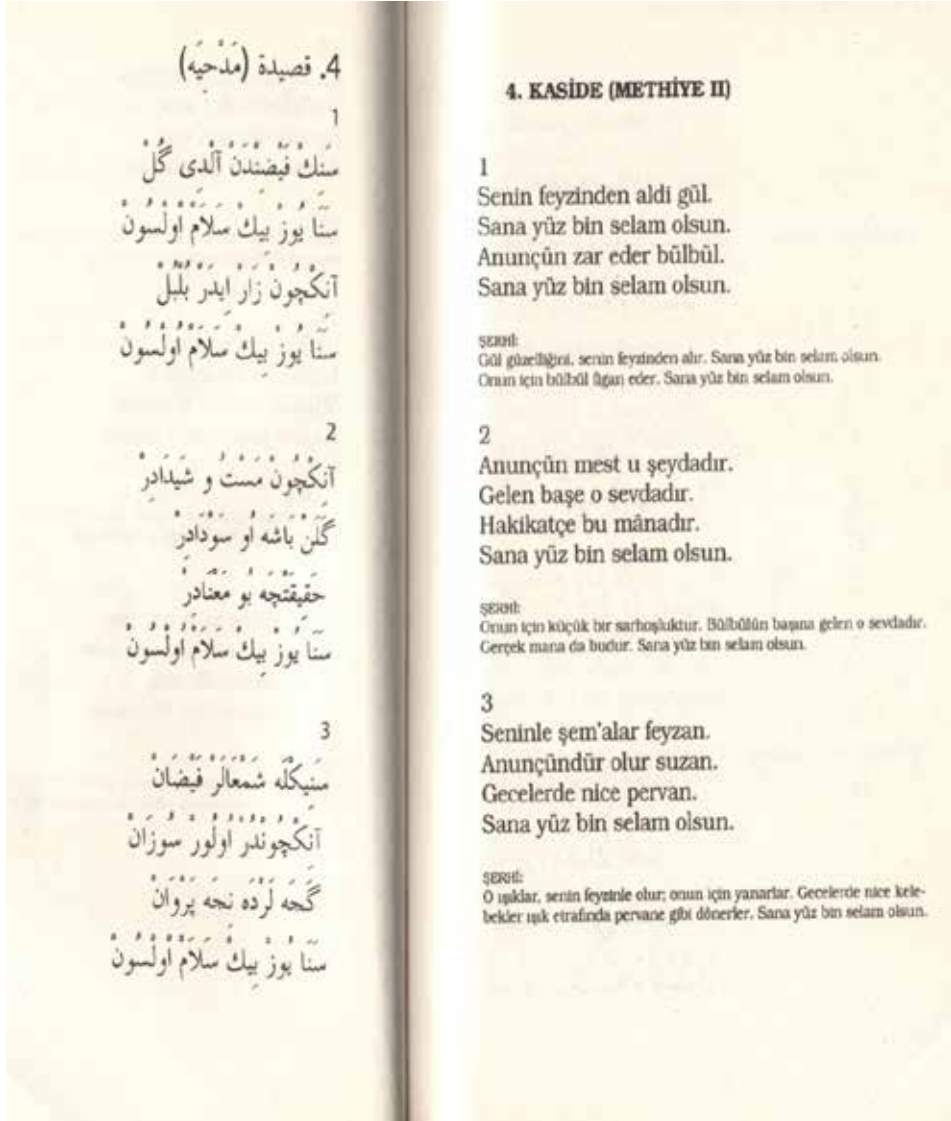 4. قصيدة (مَدْحِيَه)
1
سَنِكْ فَيْضِنْدَنْ آلْدِى گُلْ
سَنَا يُوزْ بِيكْ سَلَامْ اُولْسُونْ
آنِكْچُونْ زَارْ ايدَرْ بُلْبُلْ
سَنَا يُوزْ بِيكْ سَلَامْ اُولْسُونْ
2
آنِكْچُونْ مَسْتُ و شَيْدَادِرْ
گَلَنْ بَاشَه اُو سَوْدَادِرْ
حَقِيقَتْچَه بُو مَعْنَادِرْ
سَنَا يُوزْ بِيكْ سَلَامْ اُولْسُونْ
3
سَنِيكْلَه شَمْعَالَرْ فَيْضَانْ
آنِكْچُونْدُرْ اولُورْ سُوزَانْ
گَجَه لَرْدَه نجَه پَرْوَانْ
سَنَا يُوزْ بِيكْ سَلَامْ اُولْسُونْ
4. KASİDE (METHİYE II)
1
Senin feyzinden aldi gül.
Sana yüz bin selam olsun.
Anunçün zar eder bülbül.
Sana yüz bin selam olsun.
ŞERHİ:
Gül güzelliğini, senin feyzinden alır. Sana yüz bin selam olsun.
Onun için bülbül figan eder. Sana yüz bin selam olsun.
2
Anunçün mest u şeydadır.
Gelen başe o sevdadır.
Hakikatçe bu mânadır.
Sana yüz bin selam olsun.
ŞERHİ:
Onun için küçük bir sarhoşluktur. Bülbülün başına gelen o sevdadır.
Gerçek mana da budur. Sana yüz bin selam olsun.
3
Seninle şem'alar feyzan.
Anunçündür olur suzan.
Gecelerde nice pervan.
Sana yüz bin selam olsun.
ŞERHİ:
O ışıklar, senin feyzinle olur; onun için yanarlar. Gecelerde nice kele-
bekler ışık etrafında pervane gibi dönerler. Sana yüz bin selam olsun.